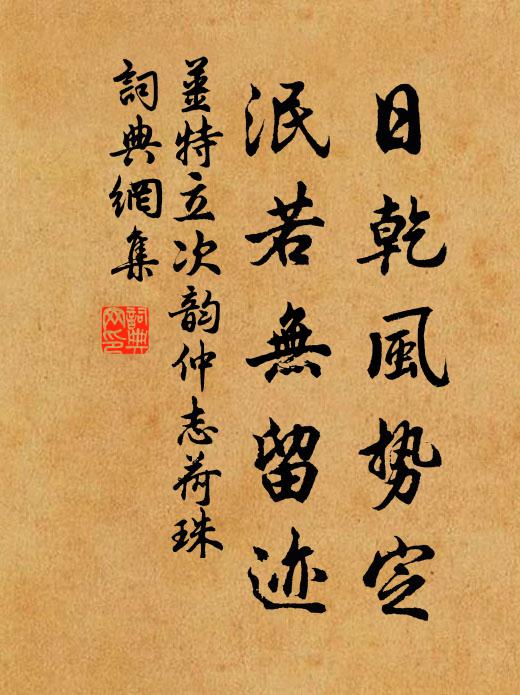 日乾風勢定
泯若無留迹
薑特立次韵仲志荷珠
詞典網集
詞典網印